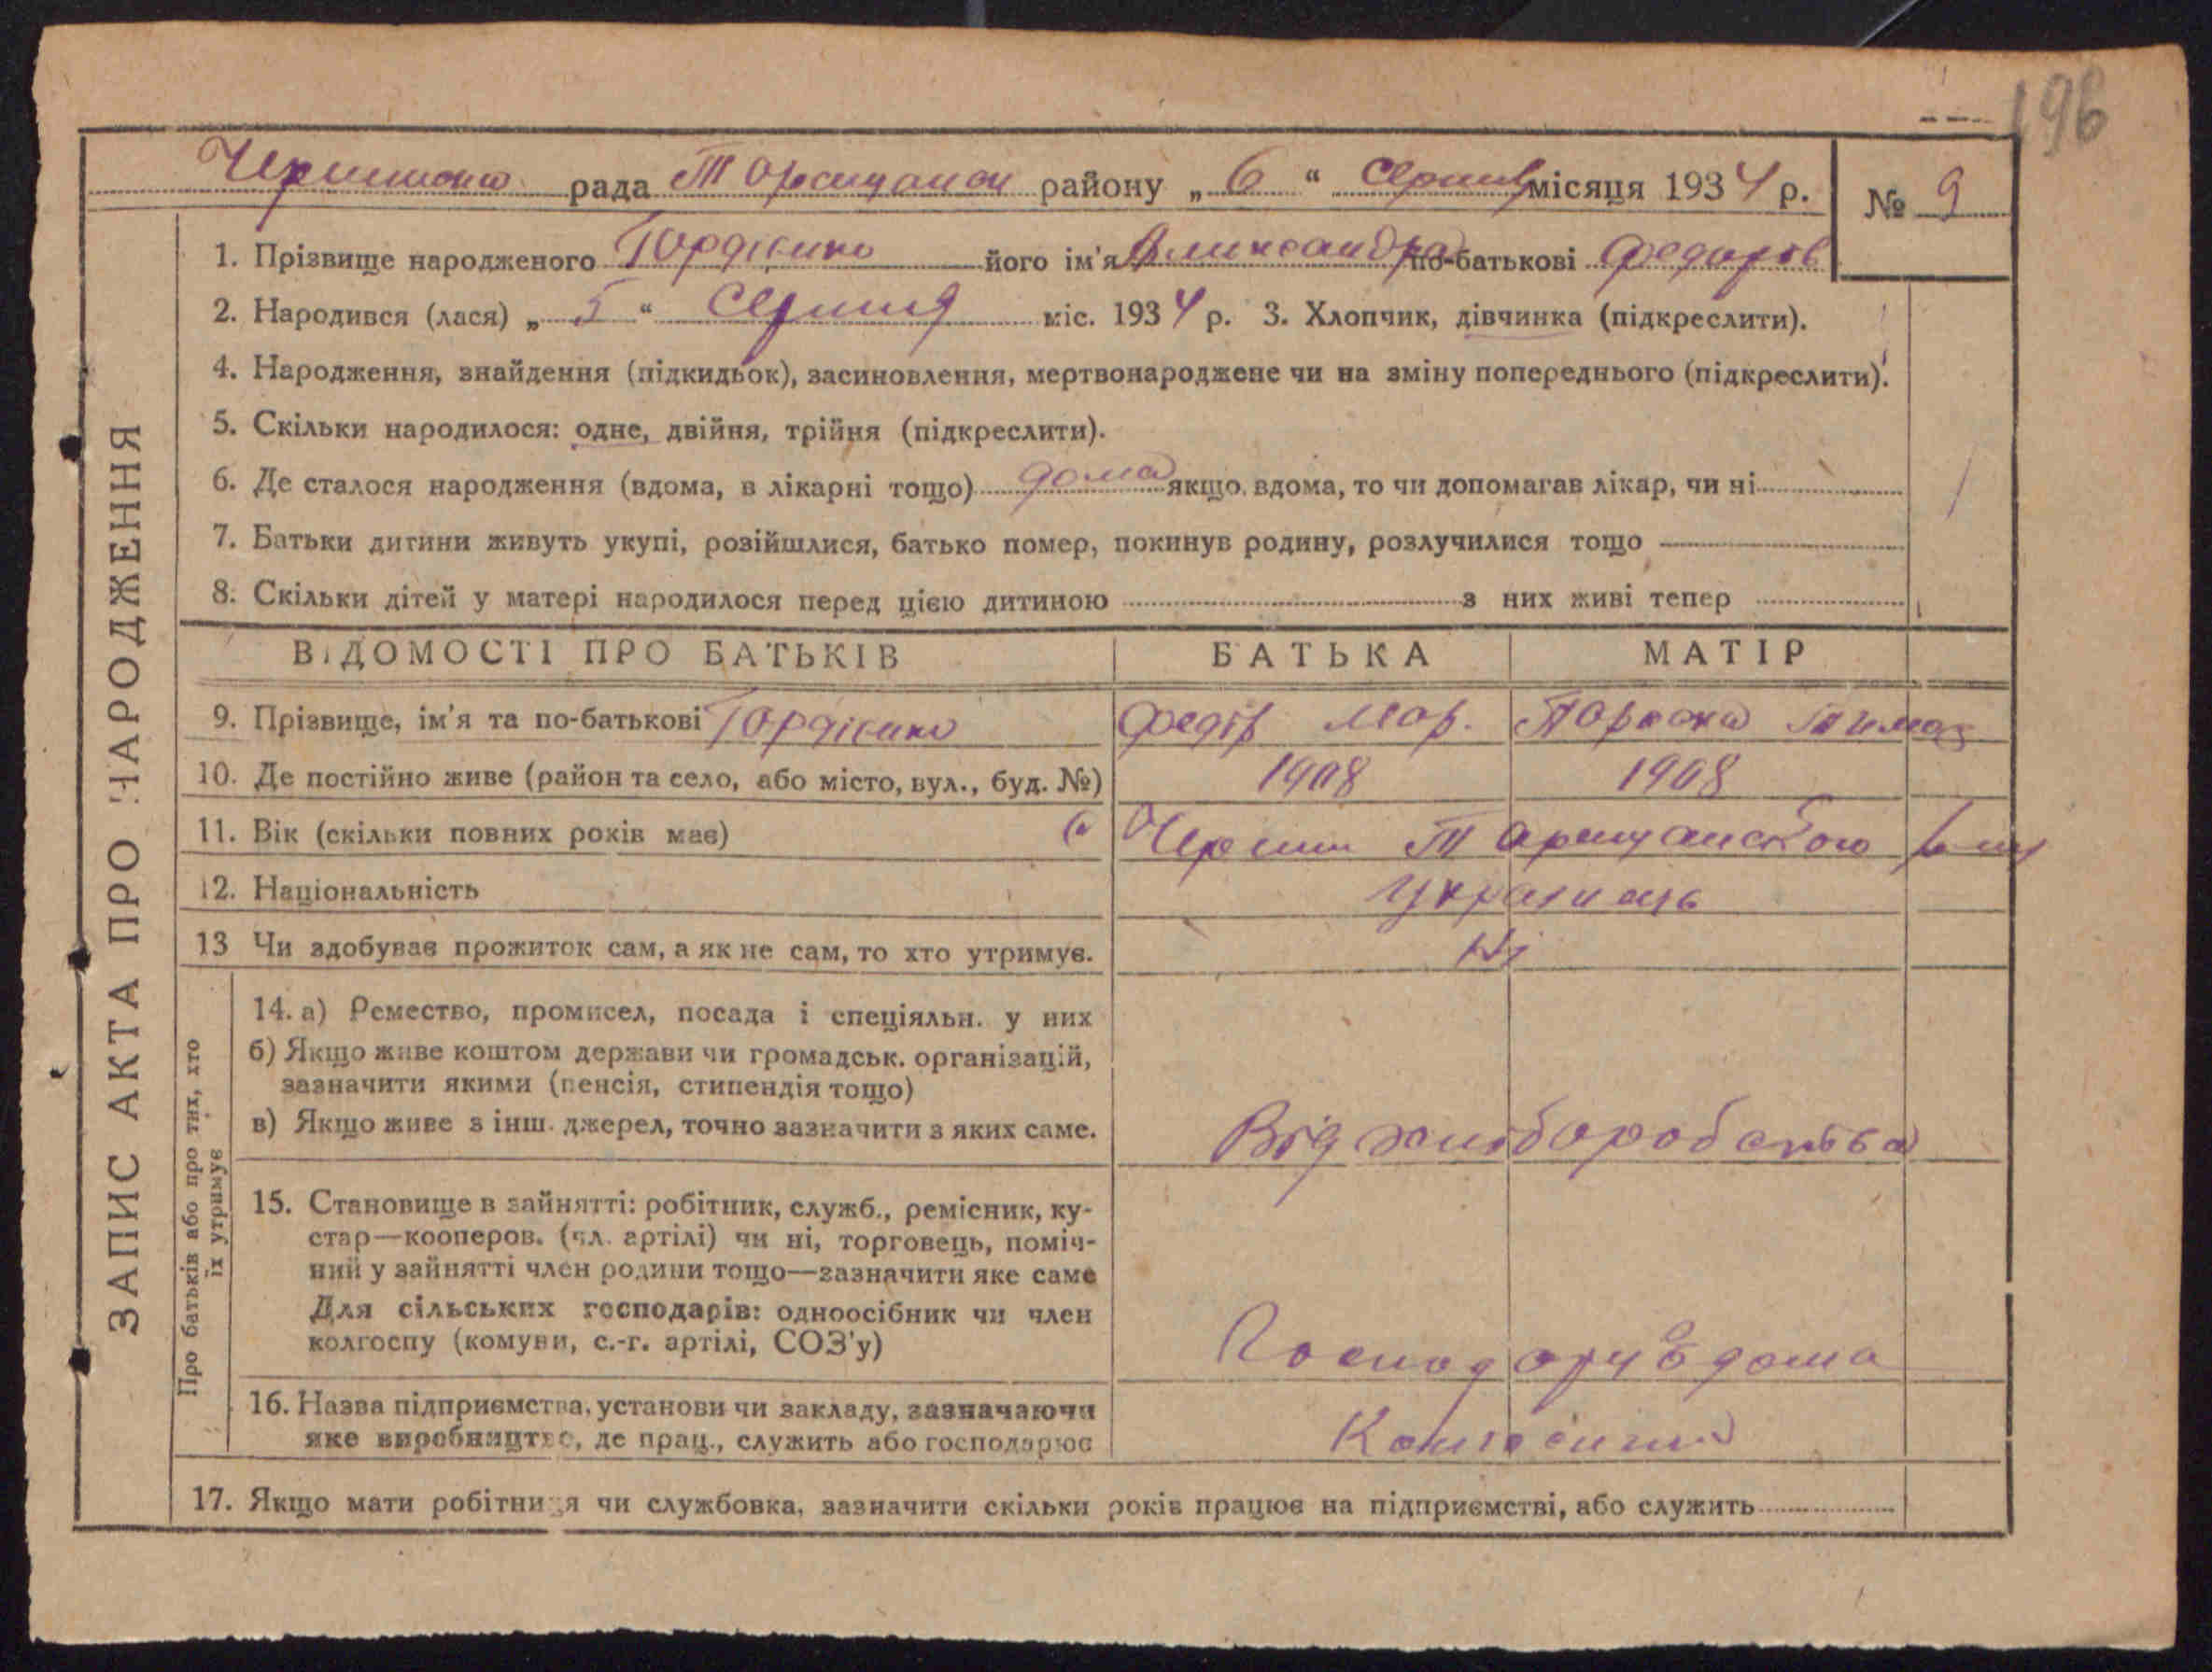 196
рада Таращанськ району „ 6 “ Серпня місяця 1934 р. № 9
1. Прізвище народженого Гордієнко його ім'я Александра по-батькові Федоров
2. Народився (лася) „ 5 “ Серпня міс. 1934 р. 3. Хлопчик, дівчинка (підкреслити).
4. Народження, знайдення (підкидьок), засиновлення, мертвонароджене чи на зміну попереднього (підкреслити).
5. Скільки народилося: одне, двійня, трійня (підкреслити).
6. Де сталося народження (вдома, в лікарні тощо) дома якщо вдома, то чи допомагав лікар, чи ні
7. Батьки дитини живуть укупі, розійшлися, батько помер, покинув родину, розлучилися тощо
8. Скільки дітей у матері народилося перед цією дитиною з них живі тепер
ЗАПИС АКТА ПРО НАРОДЖЕННЯ
ВІДОМОСТІ ПРО БАТЬКІВ БАТЬКА МАТІР
9. Прізвище, ім'я та по-батькові Гордієнко Федір Мар. Параска Тимоф
10. Де постійно живе (район та село, або місто, вул., буд. №) 1908 1908
11. Вік (скільки повних років має) с Чернин Таращанського р-ну
12. Національність Українець
13 Чи здобуває прожиток сам, а як не сам, то хто утримує. Ні
Про батьків або про тих, хто
їх утримує
14. а) Ремество, промисел, посада і спеціяльн. у них
б) Якщо живе коштом держави чи громадськ. організацій,
зазначити якими (пенсія, стипендія тощо)
в) Якщо живе з інш. джерел, точно зазначити з яких саме. Від хліборобства
15. Становище в зайнятті: робітник, служб., ремісник, ку-
стар—кооперов. (чл. артілі) чи ні, торговець, поміч-
ний у зайнятті член родини тощо—зазначити яке саме
Для сільських господарів: одноосібник чи член
колгоспу (комуни, с.-г. артілі, СОЗ'у) Господарув дома
16. Назва підприємства, установи чи закладу, зазначаючи
яке виробництво, де прац., служить або господарює
17. Якщо мати робітниця чи службовка, зазначити скільки років працює на підприємстві, або служить